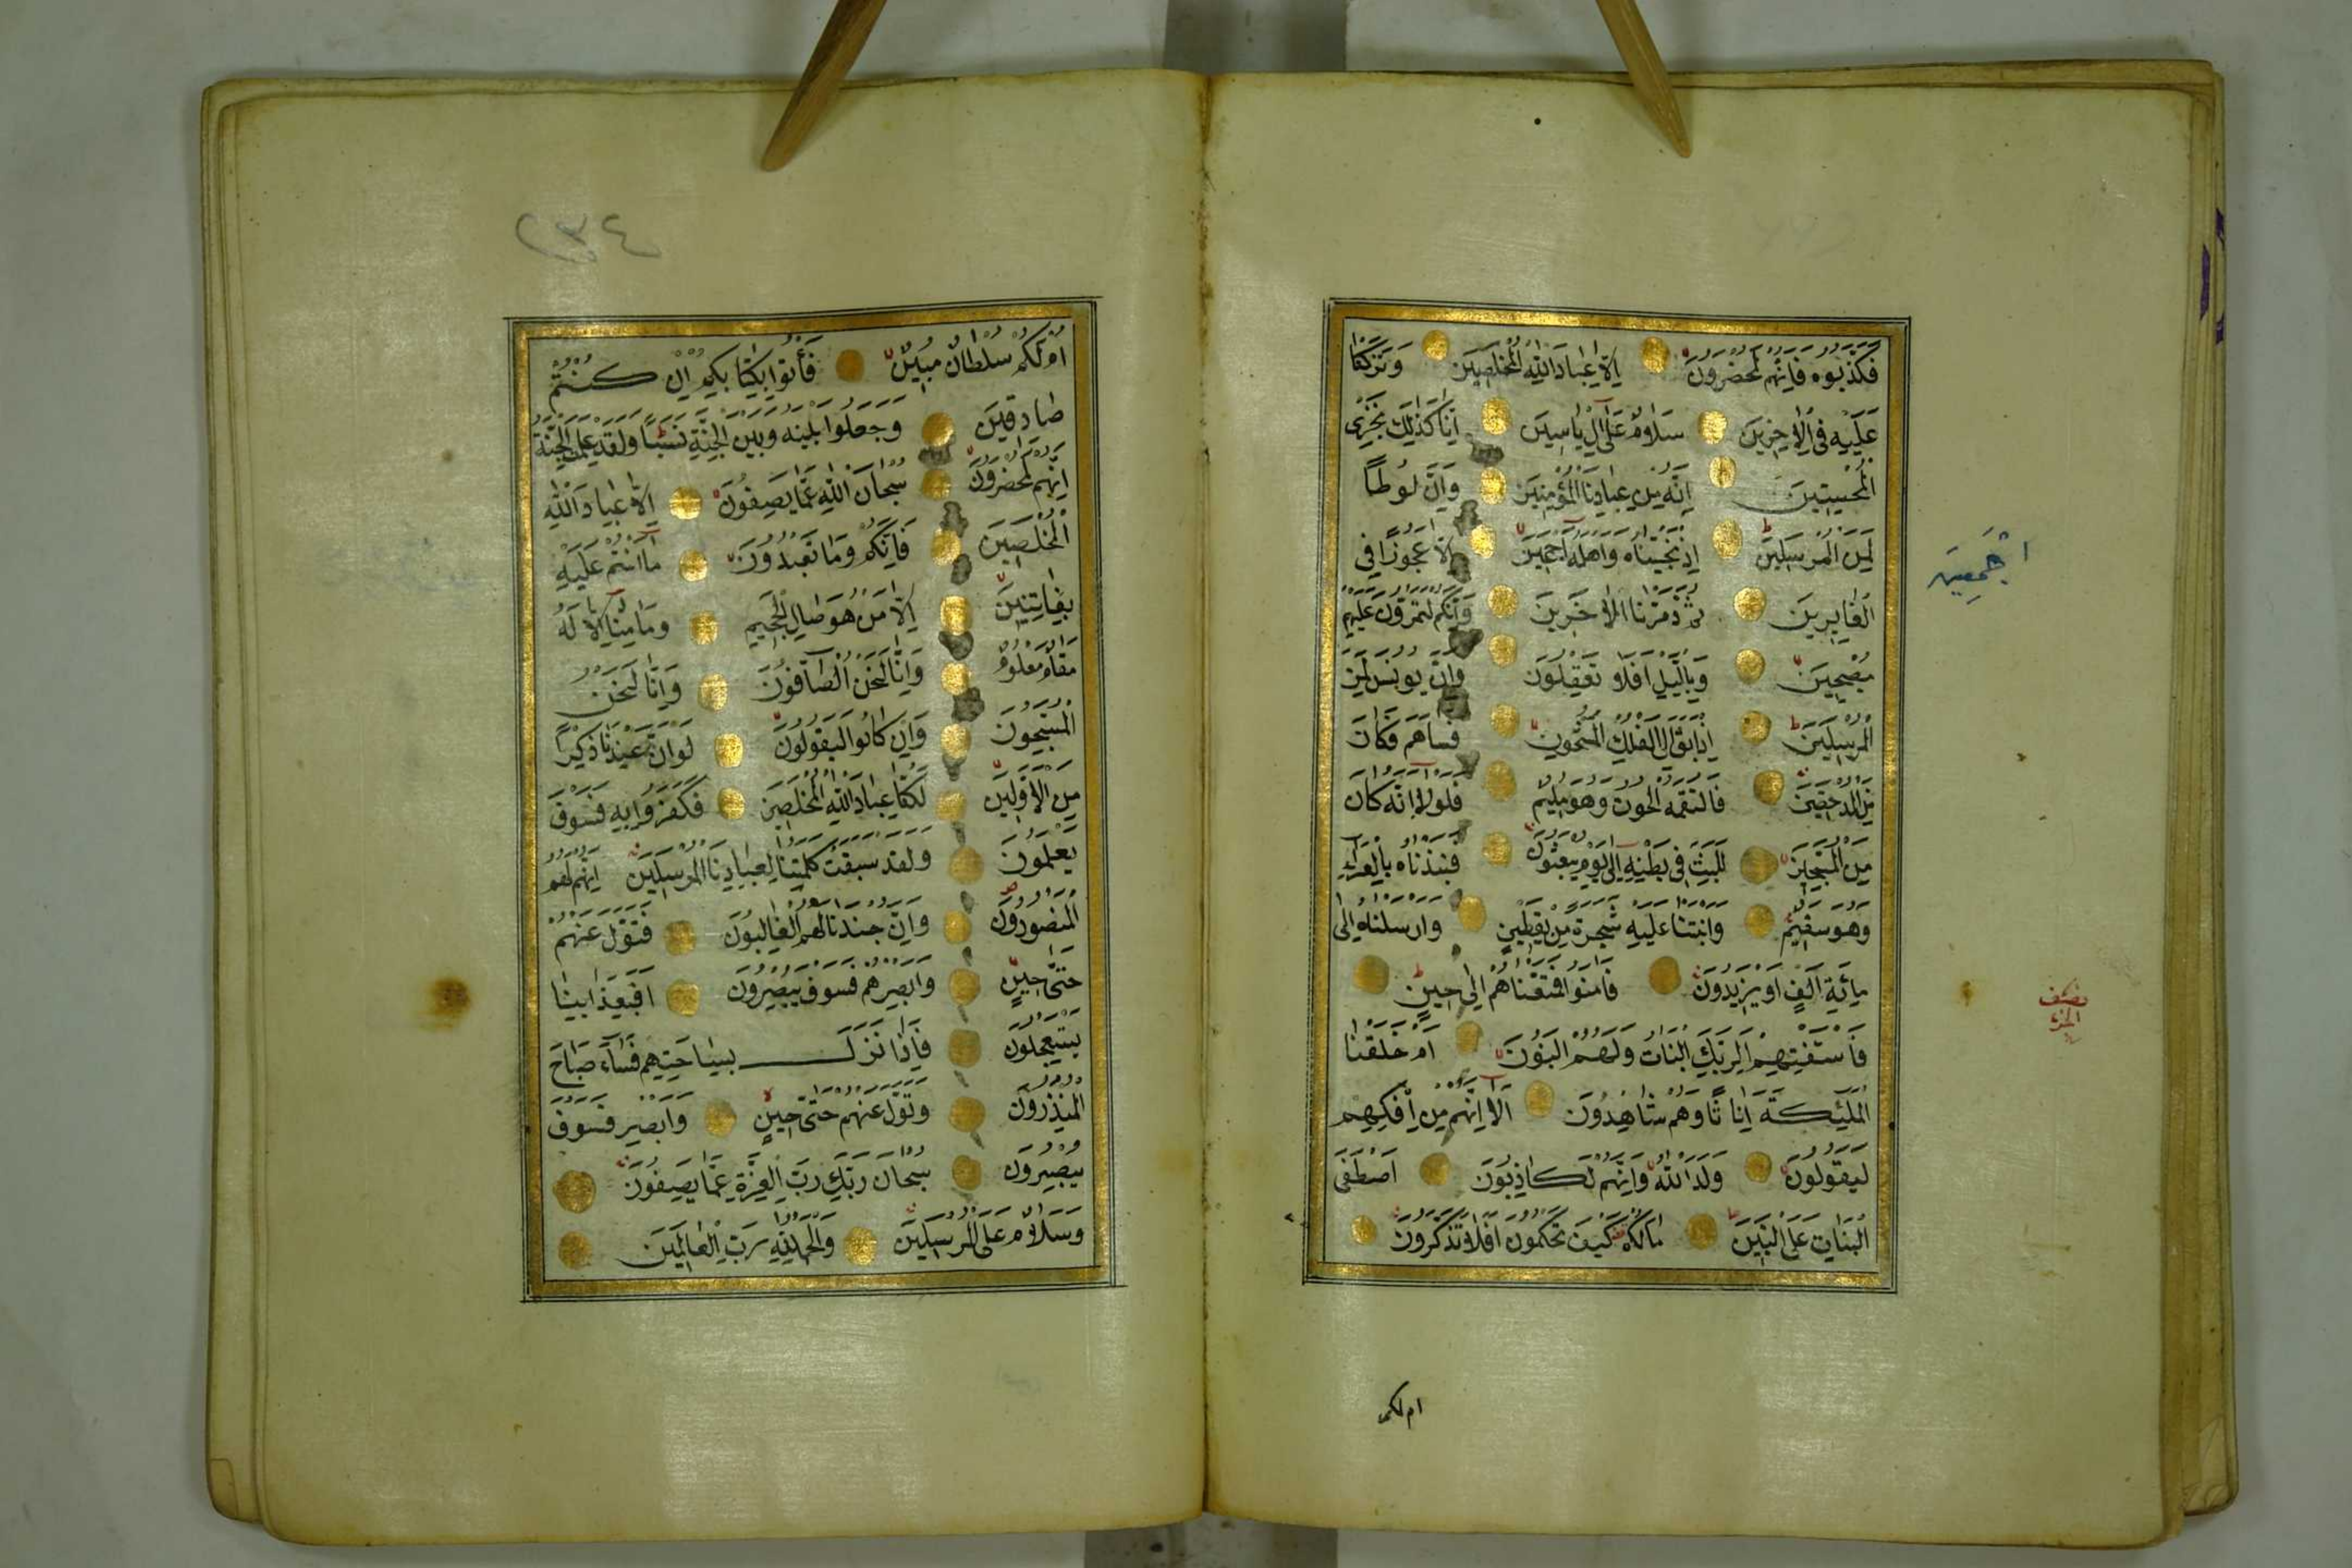 فَكَذَّبُوهُ فَاِنَّهُمْ لَمُحْضَرُونَ اِلَّا عِبَادَ اللّٰهِ الْمُخْلَصِينَ وَتَرَكْنَا
عَلَيْهِ فِى الْاٰخِرِينَ سَلَامٌ عَلٰٓى اِلْ يَاسِينَ اِنَّا كَذٰلِكَ نَجْزِى
الْمُحْسِنِينَ اِنَّهُ مِنْ عِبَادِنَا الْمُؤْمِنِينَ وَاِنَّ لُوطًا
لَمِنَ الْمُرْسَلِينَ اِذْ نَجَّيْنَاهُ وَاَهْلَهُٓ اَجْمَعِينَ اِلَّا عَجُوزًا فِى
الْغَابِرِينَ ثُمَّ دَمَّرْنَا الْاٰخَرِينَ وَاِنَّكُمْ لَتَمُرُّونَ عَلَيْهِمْ
مُصْبِحِينَ وَبِالَّيْلِ اَفَلَا تَعْقِلُونَ وَاِنَّ يُونُسَ لَمِنَ
الْمُرْسَلِينَ اِذْ اَبَقَ اِلَى الْفُلْكِ الْمَشْحُونِ فَسَاهَمَ فَكَانَ
مِنَ الْمُدْحَضِينَ فَالْتَقَمَهُ الْحُوتُ وَهُوَ مُلِيمٌ فَلَوْلَٓا اَنَّهُ كَانَ
مِنَ الْمُسَبِّحِينَ لَلَبِثَ فِى بَطْنِهِٓ اِلٰى يَوْمِ يُبْعَثُونَ فَنَبَذْنَاهُ بِالْعَرَٓاءِ
وَهُوَ سَقِيمٌ وَاَنْبَتْنَا عَلَيْهِ شَجَرَةً مِنْ يَقْطِينٍ وَاَرْسَلْنَاهُ اِلٰى
مِائَةِ اَلْفٍ اَوْ يَزِيدُونَ فَاٰمَنُوا فَمَتَّعْنَاهُمْ اِلٰى حِينٍ
فَاسْتَفْتِهِمْ اَلِرَبِّكَ الْبَنَاتُ وَلَهُمُ الْبَنُونَ اَمْ خَلَقْنَا
الْمَلٰٓئِكَةَ اِنَاثًا وَهُمْ شَاهِدُونَ اَلَٓا اِنَّهُمْ مِنْ اِفْكِهِمْ
لَيَقُولُونَ وَلَدَ اللّٰهُ وَاِنَّهُمْ لَكَاذِبُونَ اَصْطَفَى
الْبَنَاتِ عَلَى الْبَنِينَ مَا لَكُمْ كَيْفَ تَحْكُمُونَ اَفَلَا تَذَكَّرُونَ
ام لكم
اَجْمَعِينَ
نصف
الجزء
٢٣٤
اَمْ لَكُمْ سُلْطَانٌ مُبِينٌ فَأْتُوا بِكِتَابِكُمْ اِنْ كُنْتُمْ
صَادِقِينَ وَجَعَلُوا بَيْنَهُ وَبَيْنَ الْجِنَّةِ نَسَبًا وَلَقَدْ عَلِمَتِ الْجِنَّةُ
اِنَّهُمْ لَمُحْضَرُونَ سُبْحَانَ اللّٰهِ عَمَّا يَصِفُونَ اِلَّا عِبَادَ اللّٰهِ
الْمُخْلَصِينَ فَاِنَّكُمْ وَمَا تَعْبُدُونَ مَٓا اَنْتُمْ عَلَيْهِ
بِفَاتِنِينَ اِلَّا مَنْ هُوَ صَالِ الْجَحِيمِ وَمَا مِنَّٓا اِلَّا لَهُ
مَقَامٌ مَعْلُومٌ وَاِنَّا لَنَحْنُ الصَّٓافُّونَ وَاِنَّا لَنَحْنُ
الْمُسَبِّحُونَ وَاِنْ كَانُوا لَيَقُولُونَ لَوْ اَنَّ عِنْدَنَا ذِكْرًا
مِنَ الْاَوَّلِينَ لَكُنَّا عِبَادَ اللّٰهِ الْمُخْلَصِينَ فَكَفَرُوا بِهِ فَسَوْفَ
يَعْلَمُونَ وَلَقَدْ سَبَقَتْ كَلِمَتُنَا لِعِبَادِنَا الْمُرْسَلِينَ اِنَّهُمْ لَهُمُ
الْمَنْصُورُونَ وَاِنَّ جُنْدَنَا لَهُمُ الْغَالِبُونَ فَتَوَلَّ عَنْهُمْ
حَتّٰى حِينٍ وَاَبْصِرْهُمْ فَسَوْفَ يُبْصِرُونَ اَفَبِعَذَابِنَا
يَسْتَعْجِلُونَ فَاِذَا نَزَلَ بِسَاحَتِهِمْ فَسَٓاءَ صَبَاحُ
الْمُنْذَرِينَ وَتَوَلَّ عَنْهُمْ حَتّٰى حِينٍ وَاَبْصِرْ فَسَوْفَ
يُبْصِرُونَ سُبْحَانَ رَبِّكَ رَبِّ الْعِزَّةِ عَمَّا يَصِفُونَ
وَسَلَامٌ عَلَى الْمُرْسَلِينَ وَالْحَمْدُ لِلّٰهِ رَبِّ الْعَالَمِينَ